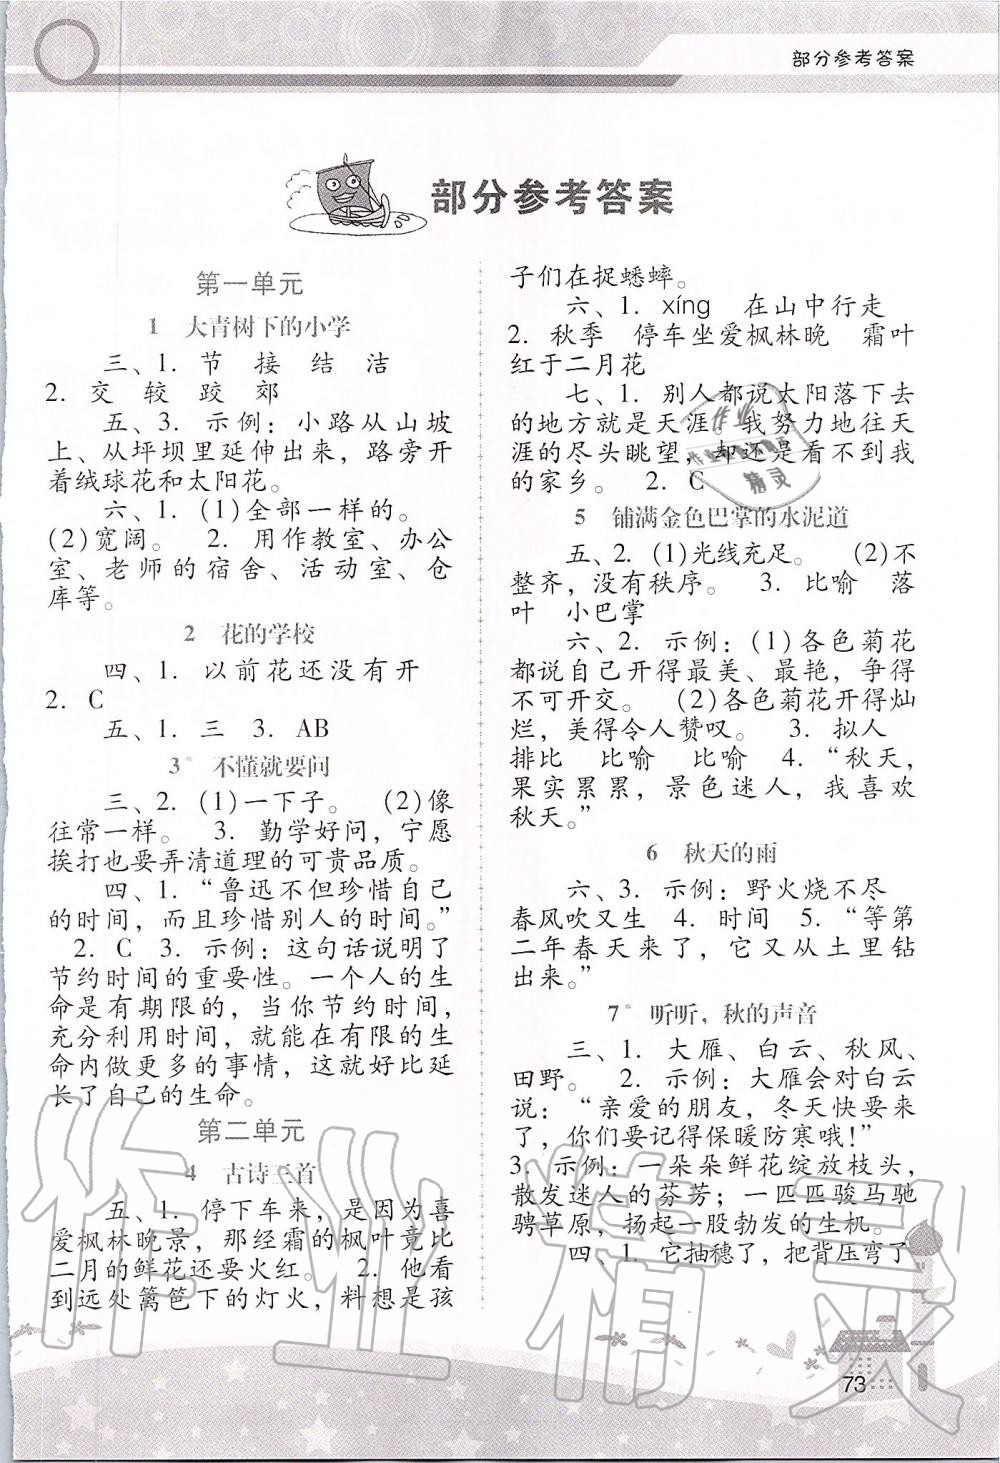 部分参考答案
部分参考答案
第一单元
1 大青树下的小学
三、1. 节 接 结 洁
2. 交 较 跤 郊
五、3. 示例：小路从山坡
上、从坪坝里延伸出来，路旁开
着绒球花和太阳花。
六、1. (1)全部一样的。
(2)宽阔。 2. 用作教室、办公
室、老师的宿舍、活动室、仓
库等。
2 花的学校
四、1. 以前花还没有开
2. C
五、1. 三 3. AB
3* 不懂就要问
三、2. (1)一下子。 (2)像
往常一样。 3. 勤学好问，宁愿
挨打也要弄清道理的可贵品质。
四、1.“鲁迅不但珍惜自己
的时间，而且珍惜别人的时间。”
2. C 3. 示例：这句话说明了
节约时间的重要性。一个人的生
命是有期限的，当你节约时间，
充分利用时间，就能在有限的生
命内做更多的事情，这就好比延
长了自己的生命。
第二单元
4 古诗三首
五、1. 停下车来，是因为喜
爱枫林晚景，那经霜的枫叶竟比
二月的鲜花还要火红。 2. 他看
到远处篱笆下的灯火，料想是孩
子们在捉蟋蟀。
六、1. xíng 在山中行走
2. 秋季 停车坐爱枫林晚 霜叶
红于二月花
七、1. 别人都说太阳落下去
的地方就是天涯。我努力地往天
涯的尽头眺望，却还是看不到我
的家乡。 2. C
5 铺满金色巴掌的水泥道
五、2. (1)光线充足。 (2)不
整齐，没有秩序。 3. 比喻 落
叶 小巴掌
六、2. 示例：(1)各色菊花
都说自己开得最美、最艳，争得
不可开交。 (2)各色菊花开得灿
烂，美得令人赞叹。 3. 拟人
排比 比喻 比喻 4.“秋天，
果实累累，景色迷人，我喜欢
秋天。”
6 秋天的雨
六、3. 示例：野火烧不尽
春风吹又生 4. 时间 5.“等第
二年春天来了，它又从土里钻
出来。”
7* 听听，秋的声音
三、1. 大雁、白云、秋风、
田野。 2. 示例：大雁会对白云
说：“亲爱的朋友，冬天快要来
了，你们要记得保暖防寒哦！”
3. 示例：一朵朵鲜花绽放枝头，
散发迷人的芬芳；一匹匹骏马驰
骋草原，扬起一股勃发的生机。
四、1. 它抽穗了，把背压弯了
73
作业精灵